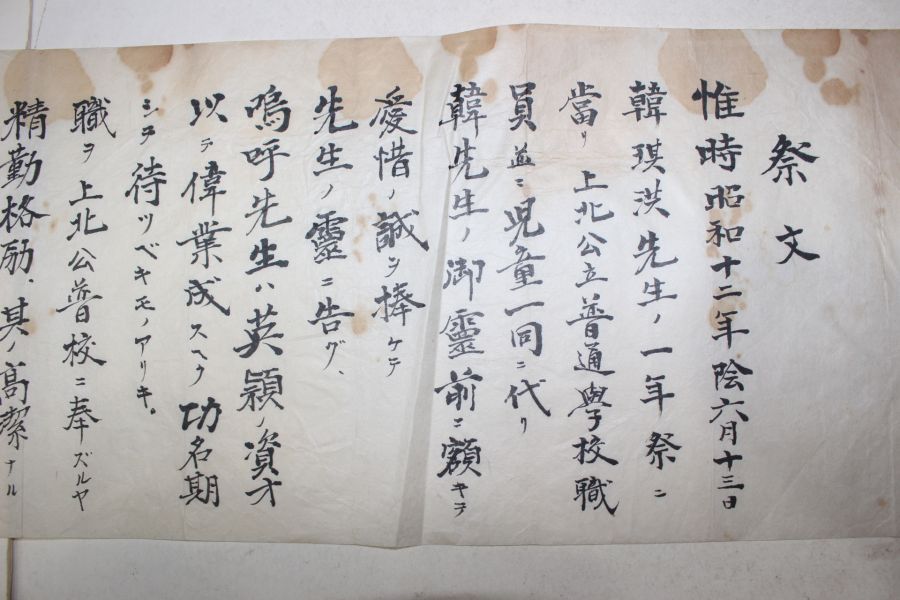 祭文
惟時昭和十二年陰六月十三日
韓琪洪先生ノ一年祭ニ
當リ上北公立普通學校職
員並ニ児童一同ニ代リ
韓先生ノ御靈前ニ額キテ
愛惜ノ誠ヲ捧ケテ
先生ノ靈ニ告グ、
嗚呼先生ハ英穎ノ資才
以テ偉業成スヘク功名期
シテ待ツベキモノアリキ。
職ヲ上北公普校ニ奉ズルヤ
精勤格励、其ノ高潔ナル